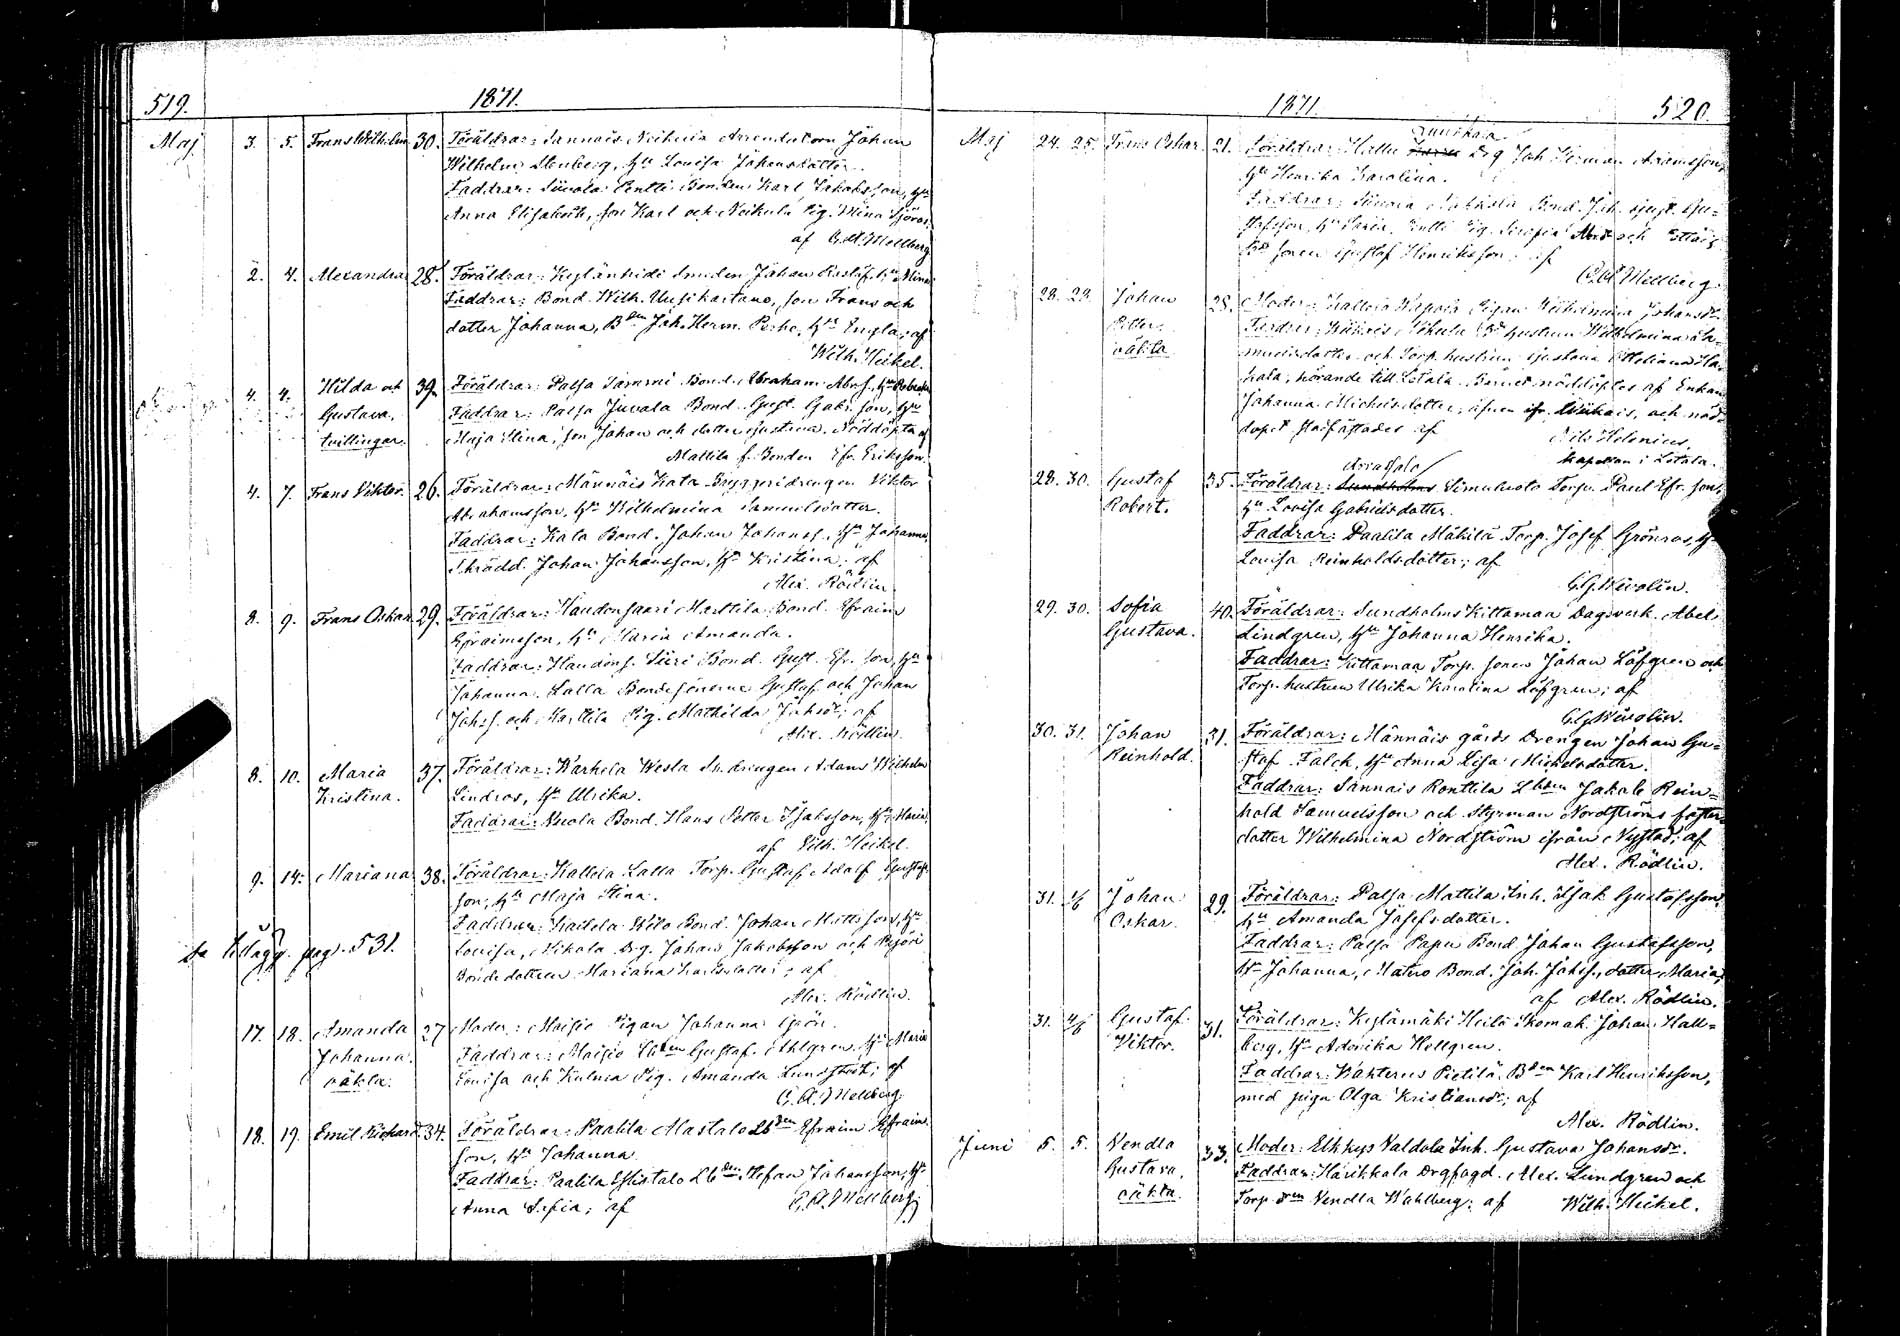 519.
1871.
Maj. 3. 5. Frans Wilhelm 30. Föräldrar: Sannais Neikula Arrendatorn Johan
Wilhelm Stenberg, Hu Lovisa Johansdotter.
Faddrar: Sünola Pentti Bonden Karl Jakobsson, Hu
Anna Elisabeth, son Karl och Neikula Pig. Mina Sjöros;
af C. A. Mellberg
2. 4. Alexandra 28. Föräldrar: Kylänkidi Smeden Johan Hu Mina
Faddrar: Bond. Wilh. Uusikartano, son Frans och
dotter Johanna, Bden Joh. Herm. Hu Engla; af
Wilh. Heikel.
4. 4. Hilda och 39. Föräldrar: Palsa Sammi Bond. Abraham Abrs.
Gustava, Faddrar: Palsa Juvala Bond. Gust. Gabr. son, Hu
tvillingar. Maja Stina, son Johan och dotter Gustava. Nöddöpta af
Mattila f. Bonden Efr. Eriksson.
4. 7. Frans Viktor. 26. Föräldrar: Männäis Kata Bryggeridrengen Viktor
Abrahamsson, Hu Wilhelmina Samuelsdotter.
Faddrar: Kata Bond. Johan Johanss. Hu Johanna,
Skrädd. Johan Johansson, Hu Kristina; af
Alex. Rödlin
8. 9. Frans Oskar. 29. Föräldrar: Haudonsaari Marttila Bond. Efraim
Efraimsson, Hu Maria Amanda.
Faddrar: Haudons. Siiri Bond. Gust. Efr. son, Hu
Johanna. Lalla Bondesönerne Gustaf och Johan
Johss. och Marttila Pig. Mathilda Johsdr; af
Alex. Rödlin.
8. 10. Maria 37. Föräldrar: Warhela Westa drengen Adam Wilhelm
Kristina. Lindros, Hu Ulrika.
Faddrar: Nuola Bond. Hans Petter Isaksson, Hu Maria
af Wilh. Heikel.
9. 14. Mariana 38. Föräldrar: Kallela Lalla Torp. Gustaf Adolf Gustafs-
son, Hu Maja Stina.
Faddrar: Bond. Johan Mattsson, Hu
Se tillägg. pag. 531. Lovisa, Nikola Drg. Johan Jakobsson och
Bondedottren Mariana Karlsdotter; af
Alex. Rödlin.
17. 18. Amanda 27 Moder: Moisio Pigan Johanna Grön.
Johanna. Faddrar: Moisio Gustaf Ahlgren, Hu Maria
oäkta. Lovisa och Kulma Pig. Amanda af
C. A. Mellberg.
18. 19. Emil Rickard. 34. Föräldrar: Paalila Mastalo Lbden Efraim Efraims-
son, Hu Johanna.
Faddrar: Paalila Lbden Stefan Johansson, Hu
Anna Sofia; af C. A. Mellberg
1871.
520.
Maj 24. 25. Frans Oskar. 21. Föräldrar: Kallu Drg Joh. Herman Adamsson,
Hu Henrika Karolina.
Faddrar: Sünola Bond. Joh. Gust. Gu-
stafsson, Hu Maria, Pentti Pig. Serafia och
sonen Gustaf Henriksson; af
C. A. Mellberg.
28. 29. Johan 28. Moder: Kallela Pigan Wilhelmina Johansdr.
Petter. Faddrar: hustrun Wilhelmina
oäkta. och Torp. hustrun Gustava
hörande till Letala. Barnet nöddöptes af Enkan
Johanna Michelsdotter, och nöd-
dopet stadfästades af Nils Helenius,
kapellan i Letala.
28. 30. Gustaf 35. Föräldrar: Simuluoto Torp. Paul Efr. son,
Robert. Hu Lovisa Gabrielsdotter.
Faddrar: Paalila Mäkilä Torp. Josef Grönros, Hu
Lovisa Reinholdsdotter; af
G. G. Wivolin.
29. 30. Sofia 40. Föräldrar: Sundholms Kittamaa Dagsverk. Abel
Gustava. Lindgren, Hu Johanna Henrika.
Faddrar: Kittamaa Torp. sonen Johan Löfgren och
Torp. hustrun Ulrika Karolina Löfgren; af
G. G. Wivolin.
30. 31. Johan 31. Föräldrar: Männäis gårds Drengen Johan Gu-
Reinhold. staf Falck, Hu Anna Lisa Mickelsdotter.
Faddrar: Sannais Ronttila Lbden Jakob Rein-
hold Samuelsson och Styrman Nordströms foster-
dotter Wilhelmina Nordström ifrån Nystad; af
Alex. Rödlin.
31. 1/6 Johan 29. Föräldrar: Palsa Mattila Inh. Isak Gustafsson,
Oskar. Hu Amanda Josefsdotter.
Faddrar: Palsa Papu Bond Johan Gustafsson,
Hu Johanna, Matero Bond. Joh. Johss., dotter Maria;
af Alex. Rödlin.
31. 4/6 Gustaf 31. Föräldrar: Kylämäki Heilä Skomak. Johan Hall-
Viktor. berg, Hu Adorika Hellgren.
Faddrar: Wakterus Pietilä Bden Karl Henriksson,
med piga Olga Kristiansdr; af
Alex. Rödlin.
Juni 5. 5. Vendla 33. Moder: Elkkys Valdola Inh. Gustava Johansdr.
Gustava, Faddrar: Harikkala Drgfogd. Alex. Lundgren och
oäkta. Torp. dren Vendla Wahlberg; af Wilh. Heikel.